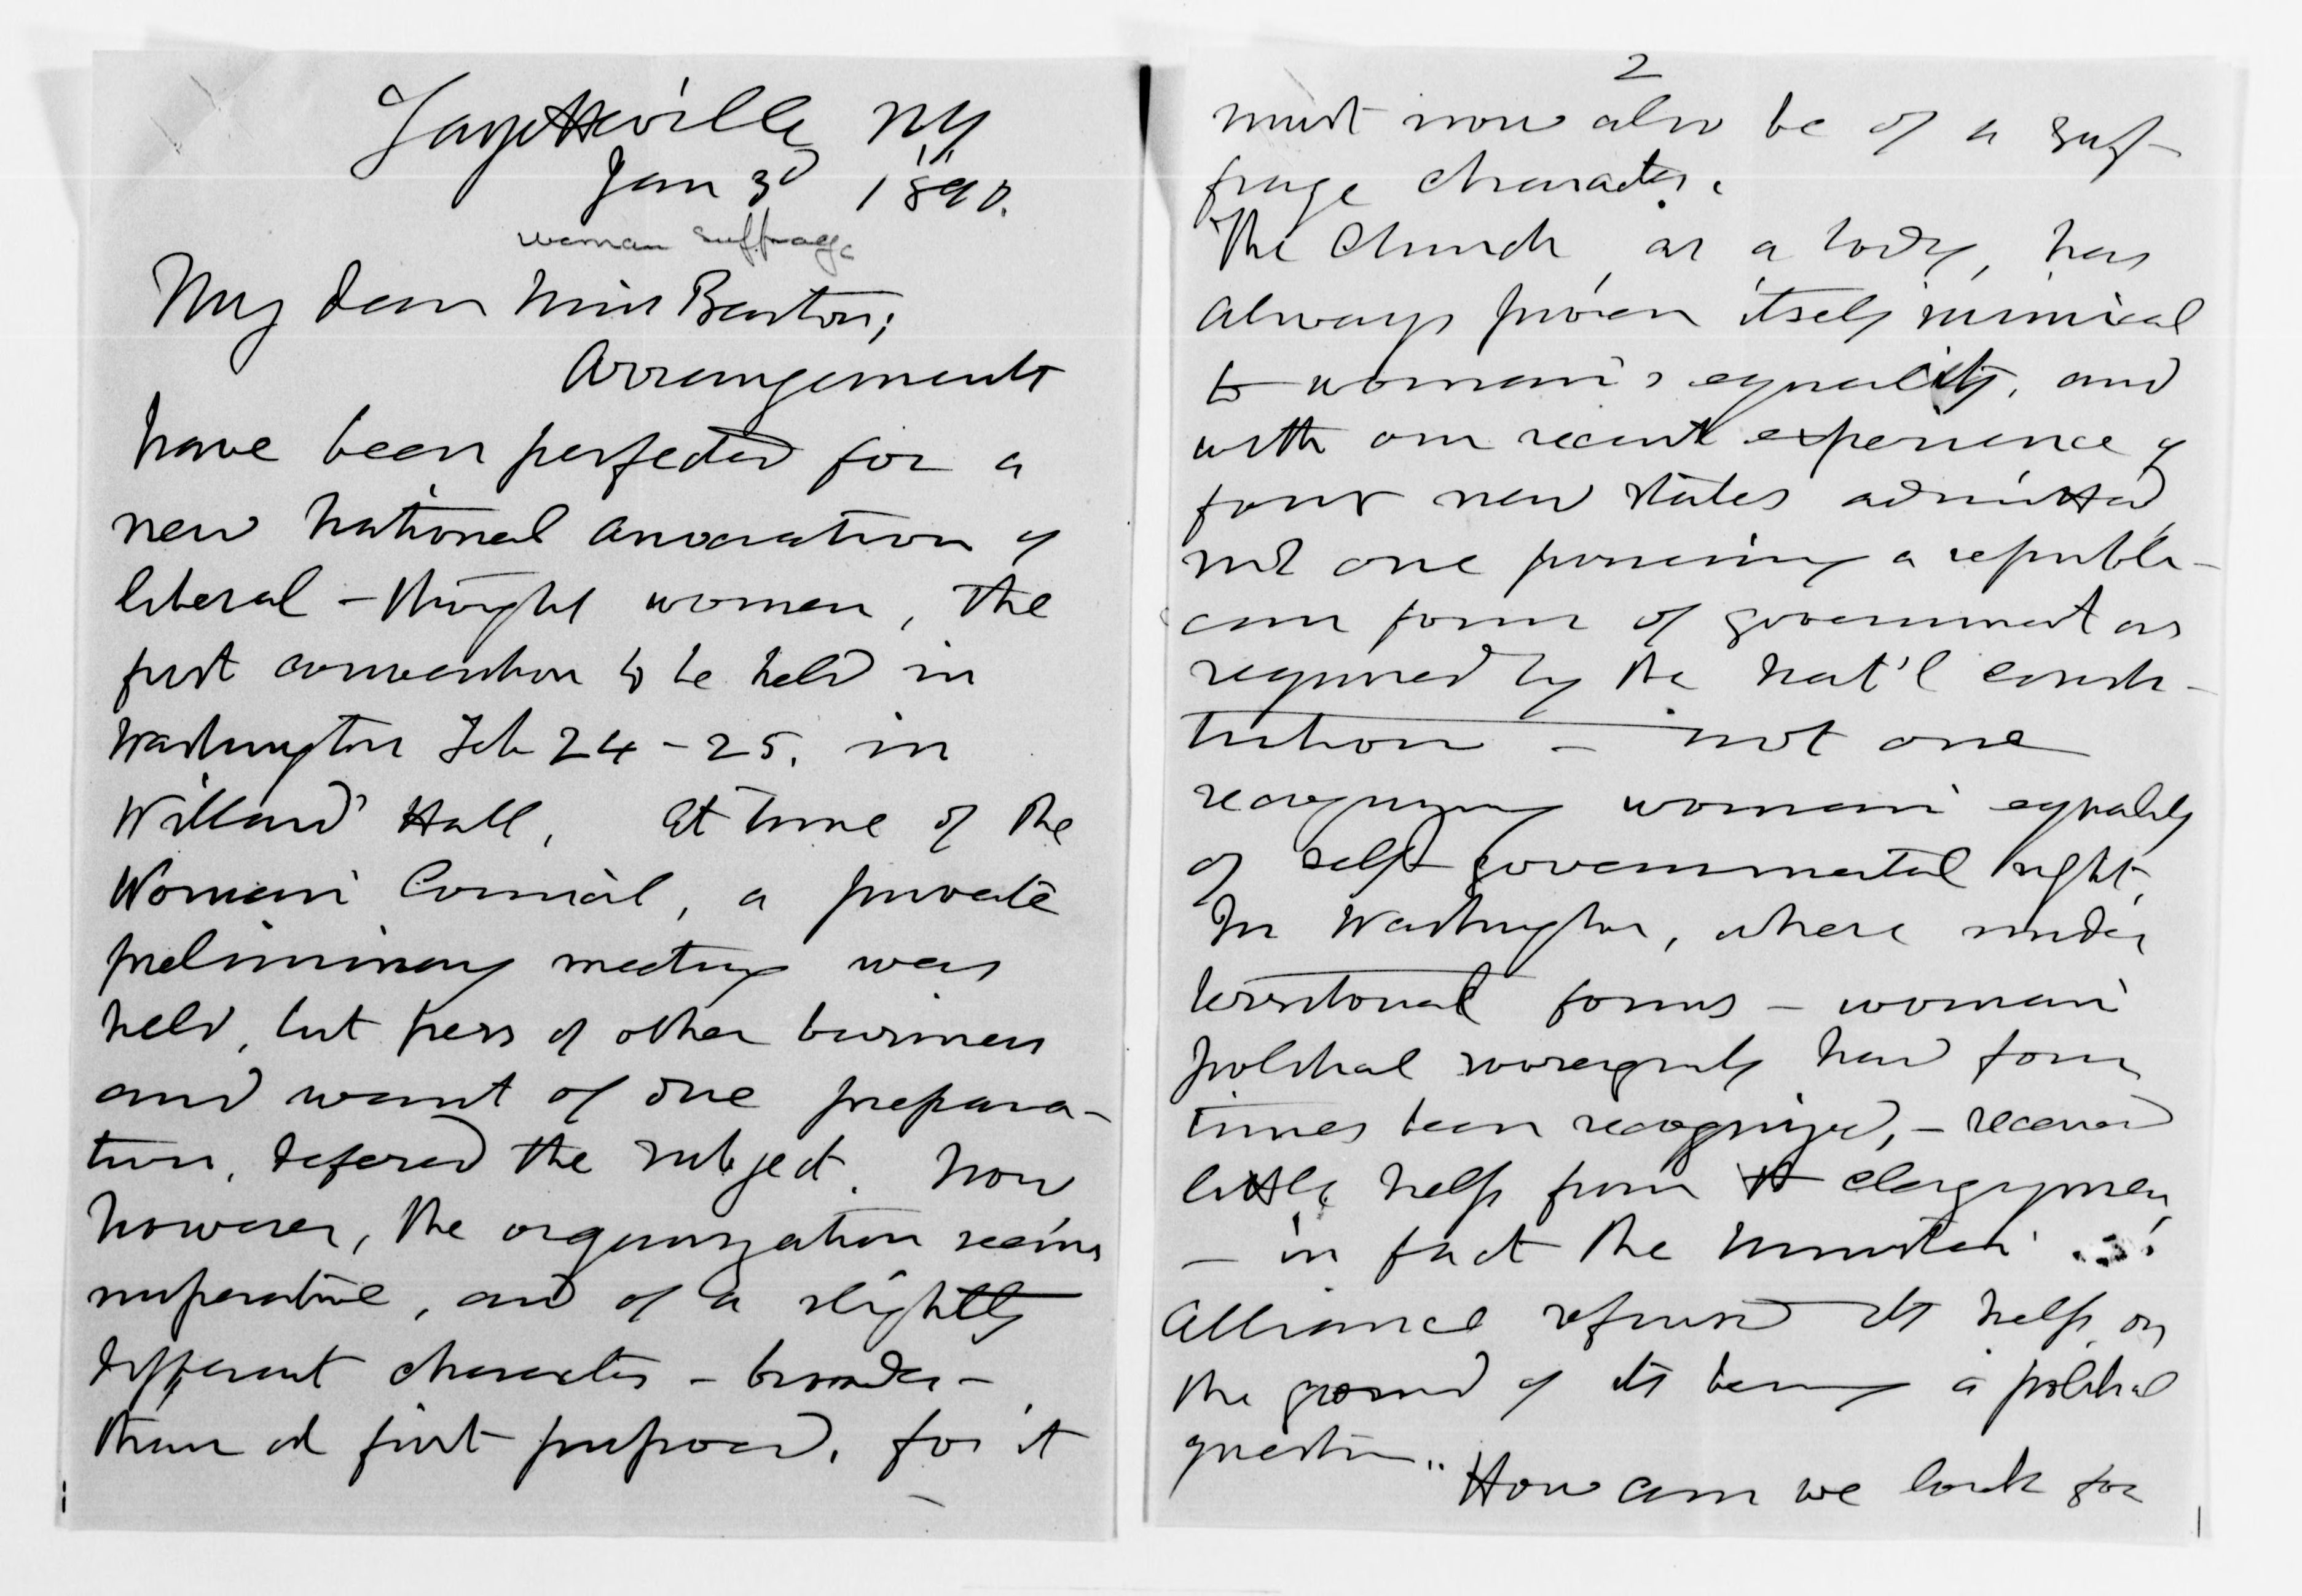 Fayetteville NY
Jan 3d 1890.
woman suffrage
My dear Miss Barton;
Arrangements
have been perfected for a
new National association of
liberal-thought women, the
first convention to be held in
Washington Feb 24-25. in
Willard's Hall, At time of the
Woman's Council, a private
preliminary meeting was
held, but press of other business
and want of due prepara-
tion, defered the subject. Now
however, the organization seems
imperative, and of a slightly
different character - broader -
than at first proposed, for it
2
must now also be of a suf-
frage character.
The Church, as a body, has
always proven itself inimical
to woman's equality, and
with our recent experience of
four new states admitted,
not one possessing a republi-
can form of government as
required by the Nat'l consti-
tution - not one
recognizing woman's equality
of self-governmental right,
In Washington, where under
territorial forms - woman's
political sovereignty had four
times been recognized, - received
little help from clergymen,
- in fact the Minister's
Alliance refused its help, on
the ground of its being a political
question.. How can we look for